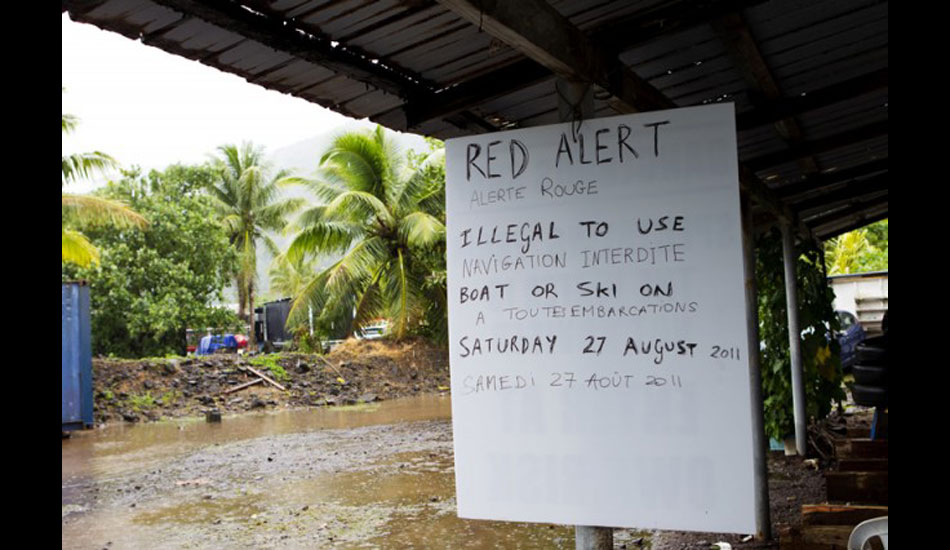 RED ALERT
ALERTE ROUGE
ILLEGAL TO USE
NAVIGATION INTERDITE
BOAT OR SKI ON
A TOUTES EMBARCATIONS
SATURDAY 27 AUGUST 2011
SAMEDI 27 AOÛT 2011